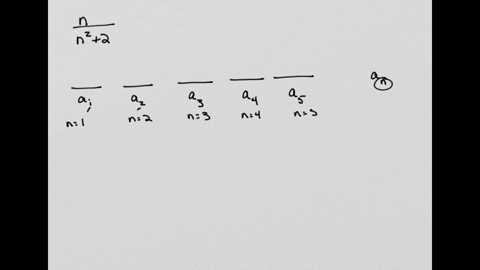 n
n²+2
a₁ a₂ a₃ a₄ a₅ aₙ
n=1 n=2 n=3 n=4 n=5